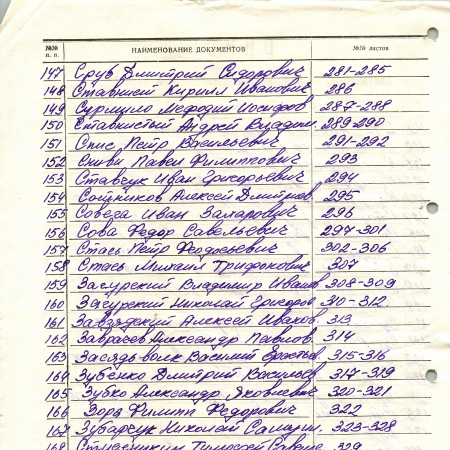 №№ п. п. НАИМЕНОВАНИЕ ДОКУМЕНТОВ №№ листов
147 Срув Дмитрий Сидорович 281-285
148 Ставицкий Кирилл Иванович 286
149 Сурмило Мефодий Иосифов 287-288
150 Ставнистый Андрей Владим. 289-290
151 Спис Пётр Васильевич 291-292
152 Сниви Павел Филиппович 293
153 Ставчук Иван Григорьевич 294
154 Сотников Алексей Дмитриев. 295
155 Совега Иван Захарович 296
156 Сова Федор Савельевич 297-301
157 Стась Пётр Феодосьевич 302-306
158 Стась Михаил Трифонович 307
159 Загурский Владимир Иванов 308-309
160 Загурский Николай Григоров 310-312
161 Алексей Иванов 313
162 Александр Павлов 314
163 Засядь-волк Василий 315-316
164 Зубенко Дмитрий Васильев 317-319
165 Зубко Александр Яковлевич 320-321
166 Зора Филипп Федорович 322
167 Зубарчук Николай 323-328
168 Тимофей 329